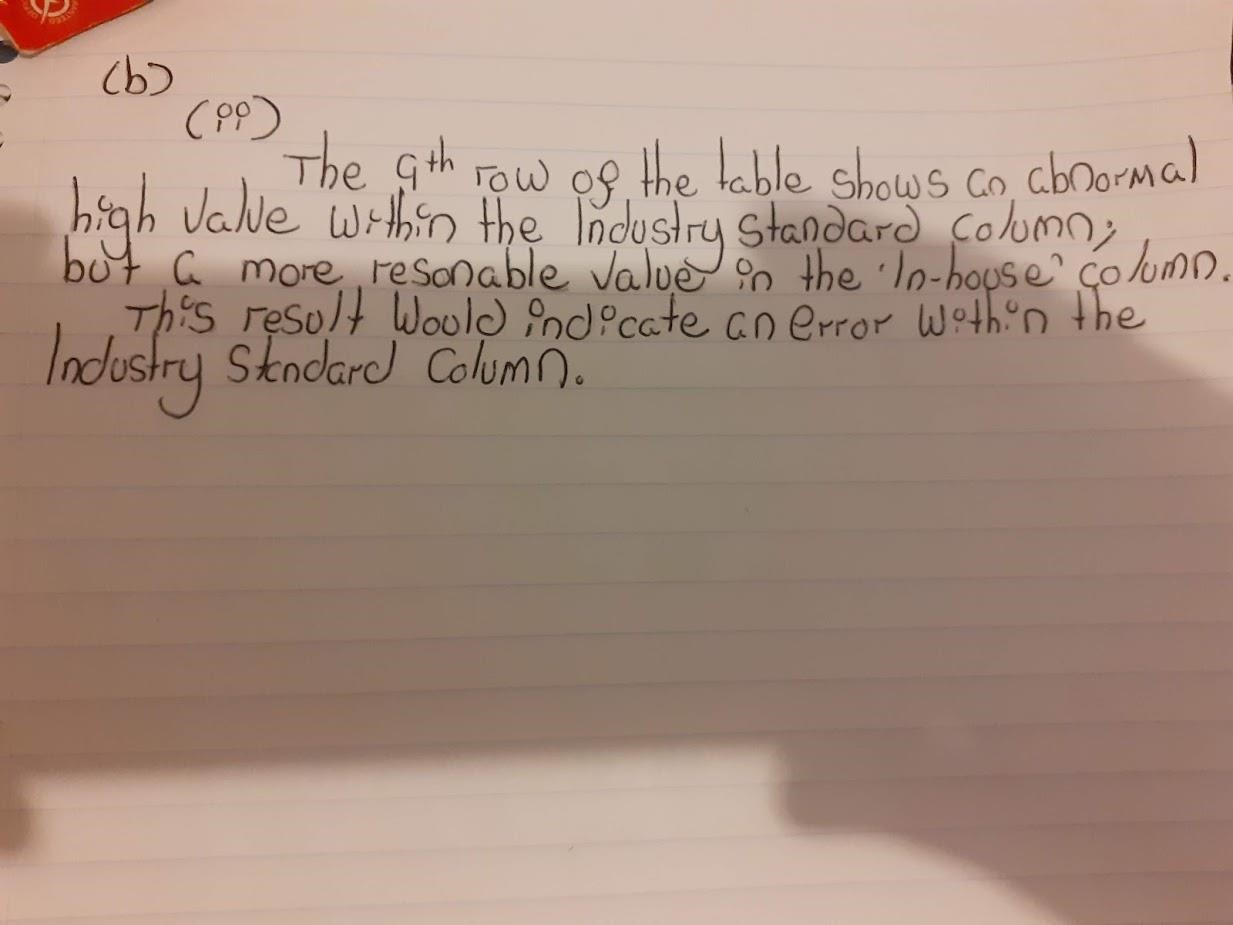 (b)
(ii)
The 9th row of the table shows an abnormal
high value within the Industry Standard column;
but a more resonable value in the 'In-house' column.
This result would indicate an error within the
Industry Standard Column.